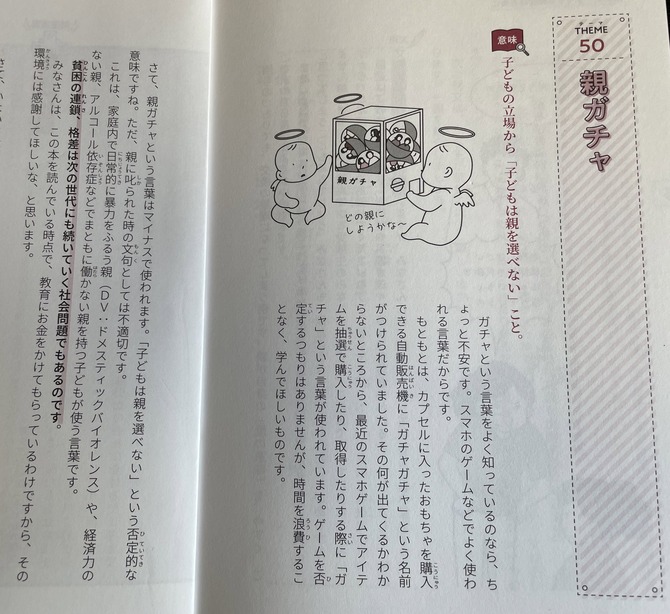 テーマ
THEME
50
親ガチャ
意味
子どもの立場から「子どもは親を選べない」こと。
親ガチャ
どの親に
しようかな～
ガチャという言葉をよく知っているのなら、ち
ょっと不安です。スマホのゲームなどでよく使わ
れる言葉だからです。
もともとは、カプセルに入ったおもちゃを購入
できる自動販売機に「ガチャガチャ」という名前
がつけられていました。その何が出てくるかわか
らないところから、最近のスマホゲームでアイテ
ムを抽選で購入したり、取得したりする際に「ガ
チャ」という言葉が使われています。ゲームを否
定するつもりはありませんが、時間を浪費するこ
となく、学んでほしいものです。
さて、親ガチャという言葉はマイナスで使われます。「子どもは親を選べない」という否定的な
意味ですね。ただ、親に叱られた時の文句としては不適切です。
これは、家庭内で日常的に暴力をふるう親（DV：ドメスティックバイオレンス）や、経済力の
ない親、アルコール依存症などでまともに働かない親を持つ子どもが使う言葉です。
貧困の連鎖、格差は次の世代にも続いていく社会問題でもあるのです。
みなさんは、この本を読んでいる時点で、教育にお金をかけてもらっているわけですから、その
環境には感謝してほしいな、と思います。